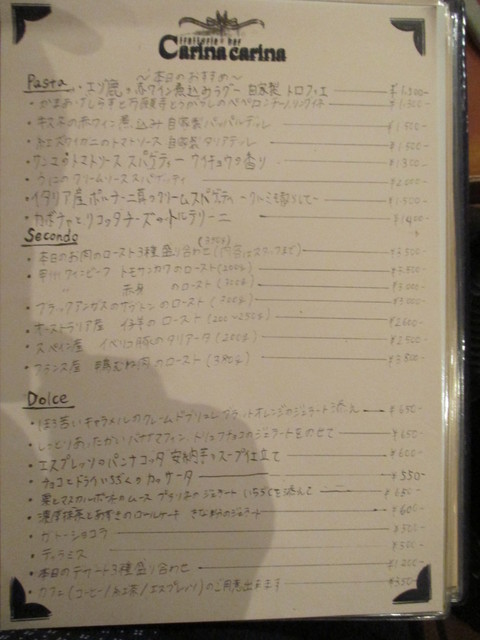 trattoria + bar
Carina carina
～本日のおすすめ～
Pasta
・エゾ鹿の赤ワイン煮込みラグー 自家製 トロフィエ ¥1,500-
・釜あげしらすと万願寺とうがらしのペペロンチーノ リングイネ ¥1,300-
の赤ワイン煮込み 自家製パッパルデッレ ¥1,500
・紅ズワイガニのトマトソース 自家製 タリアテッレ ¥1,500
トマトソース スパゲティー の香り ¥1,300
クリームソース スパゲッティ ¥2,000
・イタリア産ポルチーニ茸のクリームスパゲティ ¥1,500-
・カボチャとリコッタチーズのトルテリーニ ¥1,400
Secondo
・本日のお肉のロースト3種盛り合わせ ¥3,500
・甲州ワインビーフ トモサンカクのロースト(200g) ¥2,800
〃 赤身 のロースト(300g) ¥3,000
・ブラックアンガスのサガリのロースト(300g) ¥3,000
・オーストラリア産 仔羊のロースト(200~250g) ¥2,600
・スペイン産 イベリコ豚のタリアータ(200g) ¥2,500
・フランス産 鴨むね肉のロースト(380g) ¥3,800
Dolce
・ほろ苦いキャラメルのクレームドブリュレ オレンジのジェラート添え ¥650-
・しっとりあったかいバナナマフィン トリュフチョコのジェラートをのせて ¥650
・エスプレッソのパンナコッタ 安納芋のスープ仕立て ¥600-
・チョコとドライいちじくのカッサータ ¥550-
・栗とマスカルポーネのムース のジェラート いちじくを添えて ¥650-
・濃厚抹茶とあずきのロールケーキ きなこのジェラート ¥600
・ガトーショコラ ¥500
・ティラミス ¥500-
・本日のデザート3種盛り合わせ ¥1,200
・カフェ(コーヒー/紅茶/エスプレッソ)のご用意出来ます ¥350-